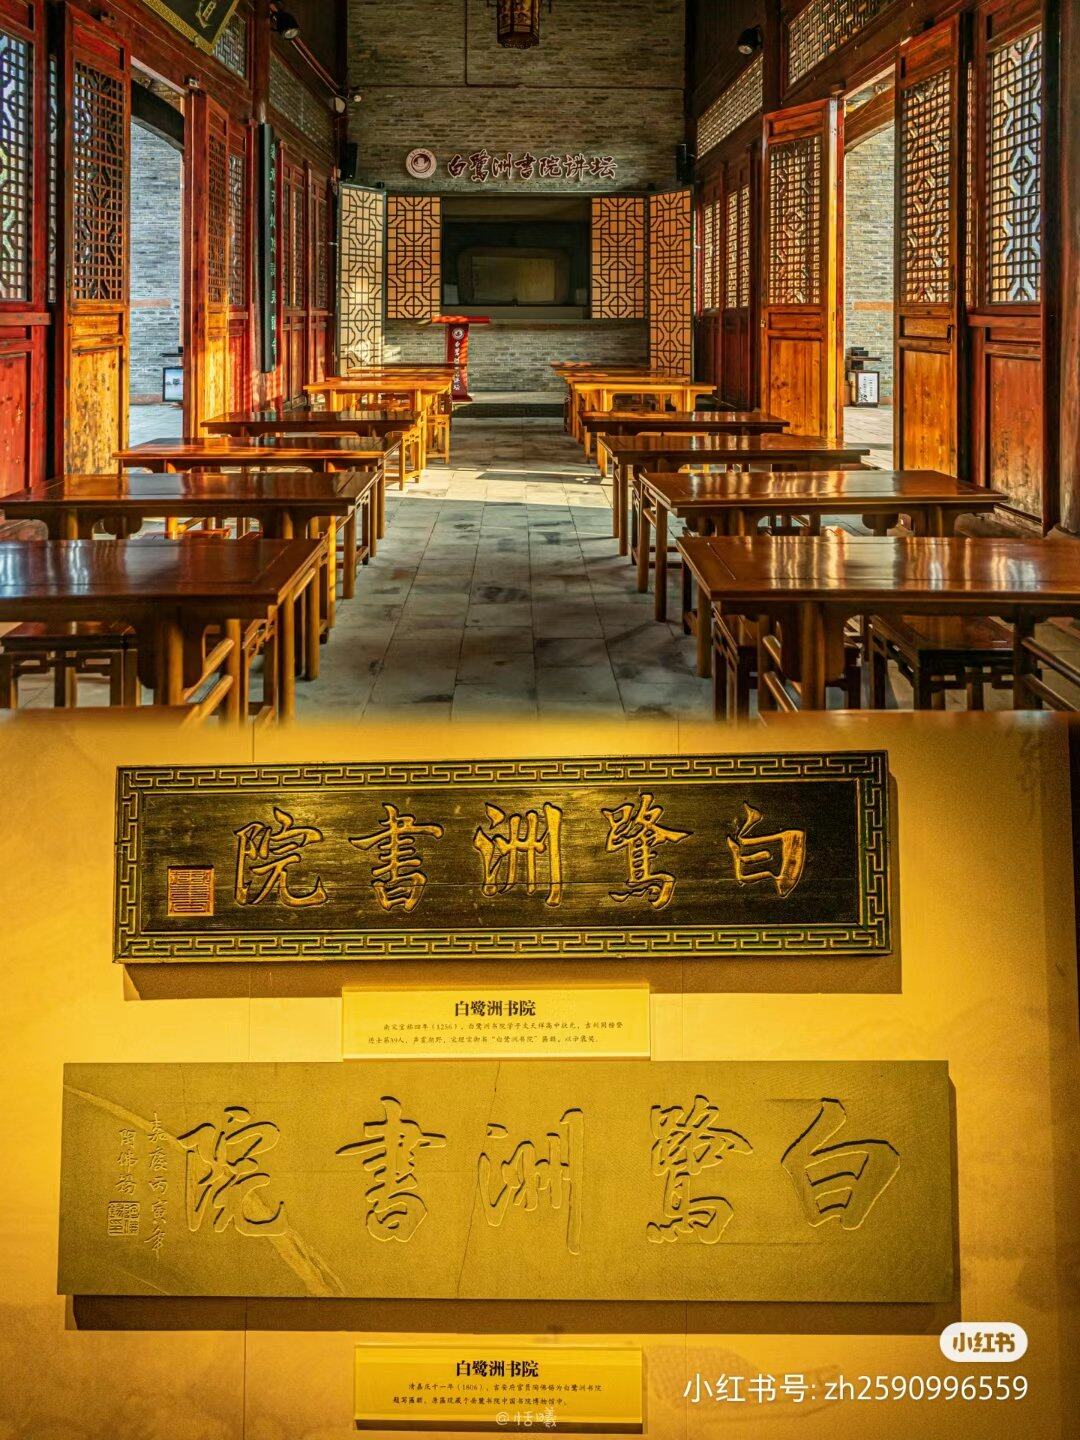 白鹭洲书院讲坛
院書洲鷺白
白鹭洲书院
南宋宝祐四年（1256），白鹭洲书院学子文天祥高中状元，吉州同榜登
进士第39人，声震朝野，宋理宗御书“白鹭洲书院”匾额，以示褒奖。
院書洲鷺白
嘉慶丙寅年
陶佛
白鹭洲书院
清嘉庆十一年（1806），吉安府官员陶佛锡为白鹭洲书院
题写匾额，原匾现藏于岳麓书院中国书院博物馆中。
小红书
小红书号: zh2590996559
@恬曦